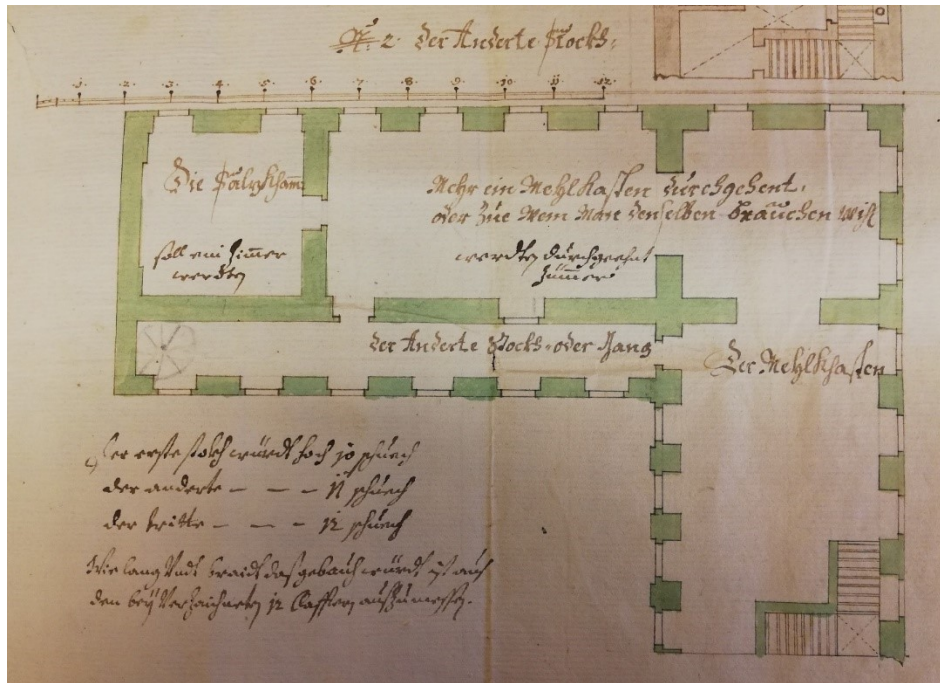 N: 2. Der Anderte Stockh:
1. 2. 3. 4. 5. 6. 7. 8. 9. 10. 11. 12.
Die Sältzkham:
soll ein Zimmer
werdten
Mehr ein Mehlkasten durchgehent,
oder Zue wem Man denselben brauchen will
werdten durchgeehnt
Zümmer
Der Anderte Stockh: oder Gang
Der Mehlkhasten
Der erste stokh würdt hoch 10 schuech
der anderte — — — 11 schuech
der tritte — — — 12 schuech
Wie lang Vndt braidt daß gebauh würdt ist auß
den beÿ Verzaichneten 12 Claffter auß Zu messen.